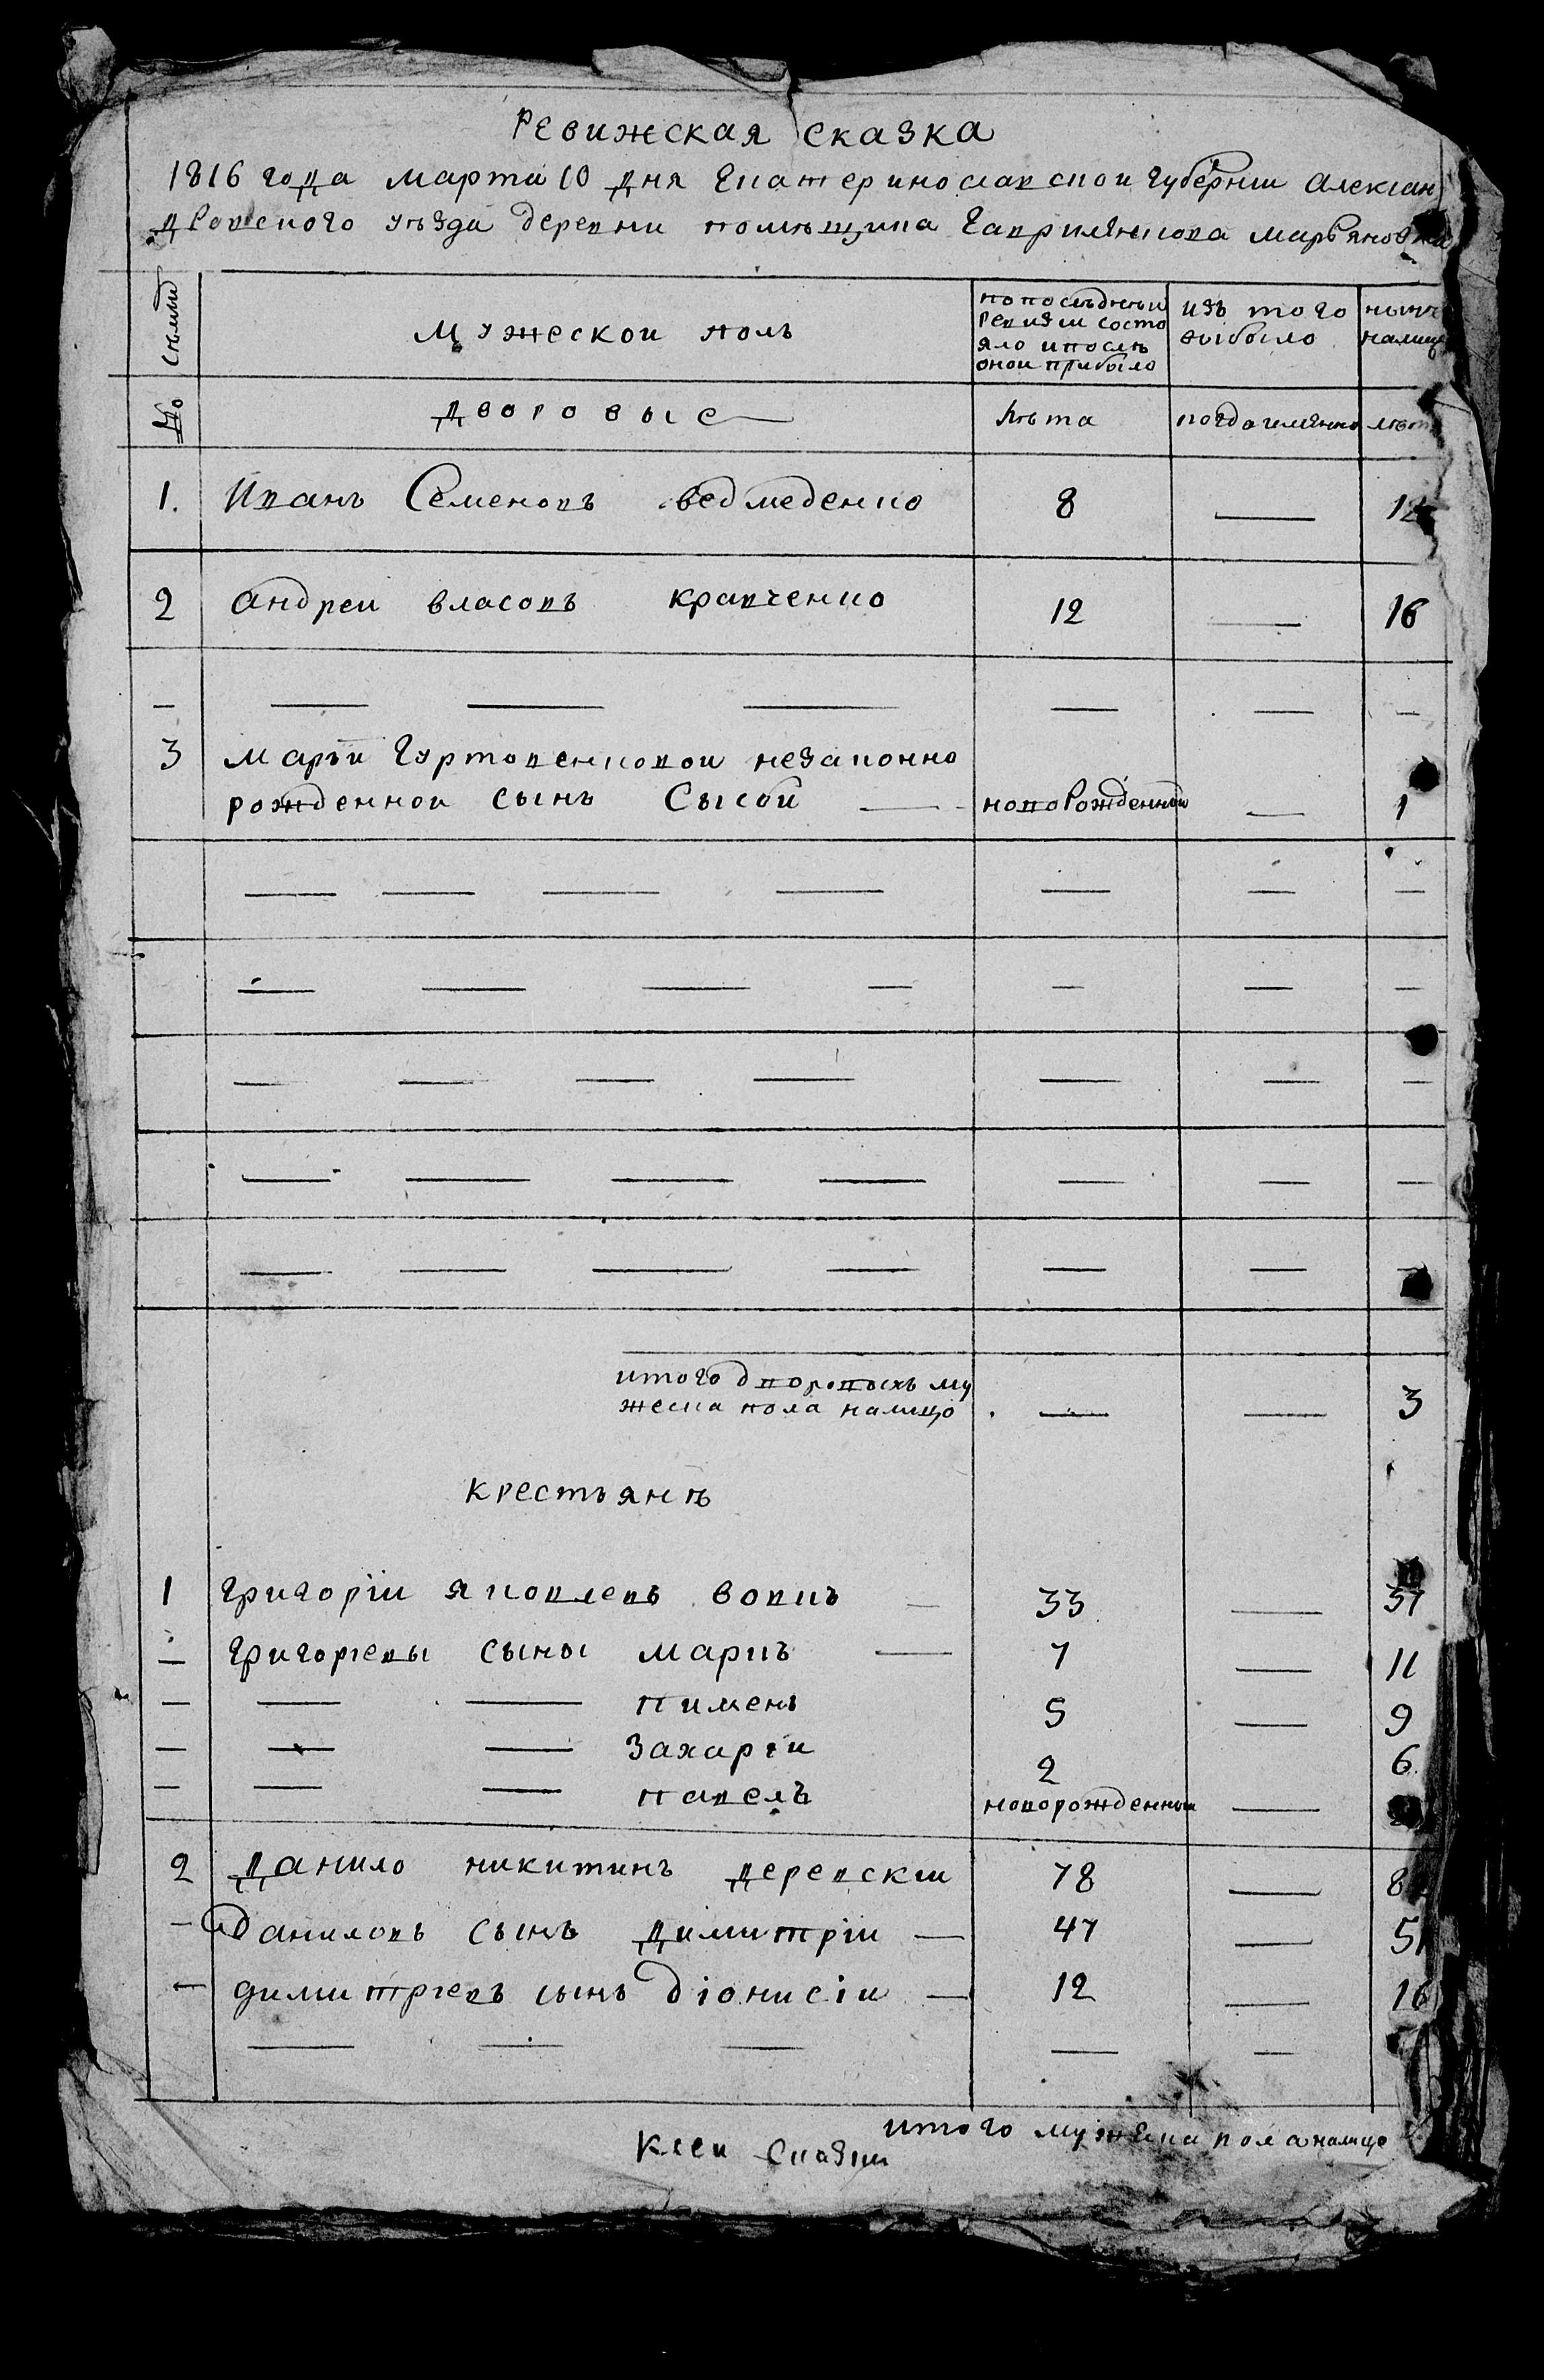 Ревижская сказка
1816 года марта 10 дня Екатеринославской губернии Алексан
дровского уѣзда деревни помѣщика Гаврилѣнкова Марьяновка
Сѣмьи
Мужеской полъ
попослѣднѣи ревизіи состояло и послѣ оной прибыло
изъ того выбыло
нынѣ налицо
№
Дворовые
лѣта
когда именно
лѣта
1. Иванъ Семеновъ Ведмеденко 8 — 12
2 Андреи Власовъ Кравченко 12 — 16
— — — — — — —
3 Марьи Гуртовенковои незаконно
рожденнои сынъ Сысои — новорожденныи — 1
— — — — — — —
— — — — — — —
— — — — — — —
— — — — — — —
— — — — — — —
итого дворовыхъ му
жеска пола налицо — — 3
Крестьянѣ
1 Григоріи Яковлевъ Вовкъ — 33 — 37
— Григорiевы сыны Маркъ — 7 — 11
— — — Пименъ 5 — 9
— — — Захаріи 2 6
— — — Павелъ новорожденныи —
2 Данило Никитинъ Деревскіи 78 — 8
— Даниловъ сынъ Димитріи — 47 — 51
— Димитріевъ сынъ Діонисіи — 12 — 16
— — — — —
итого мужеска пола налицо
Ксеи сказки